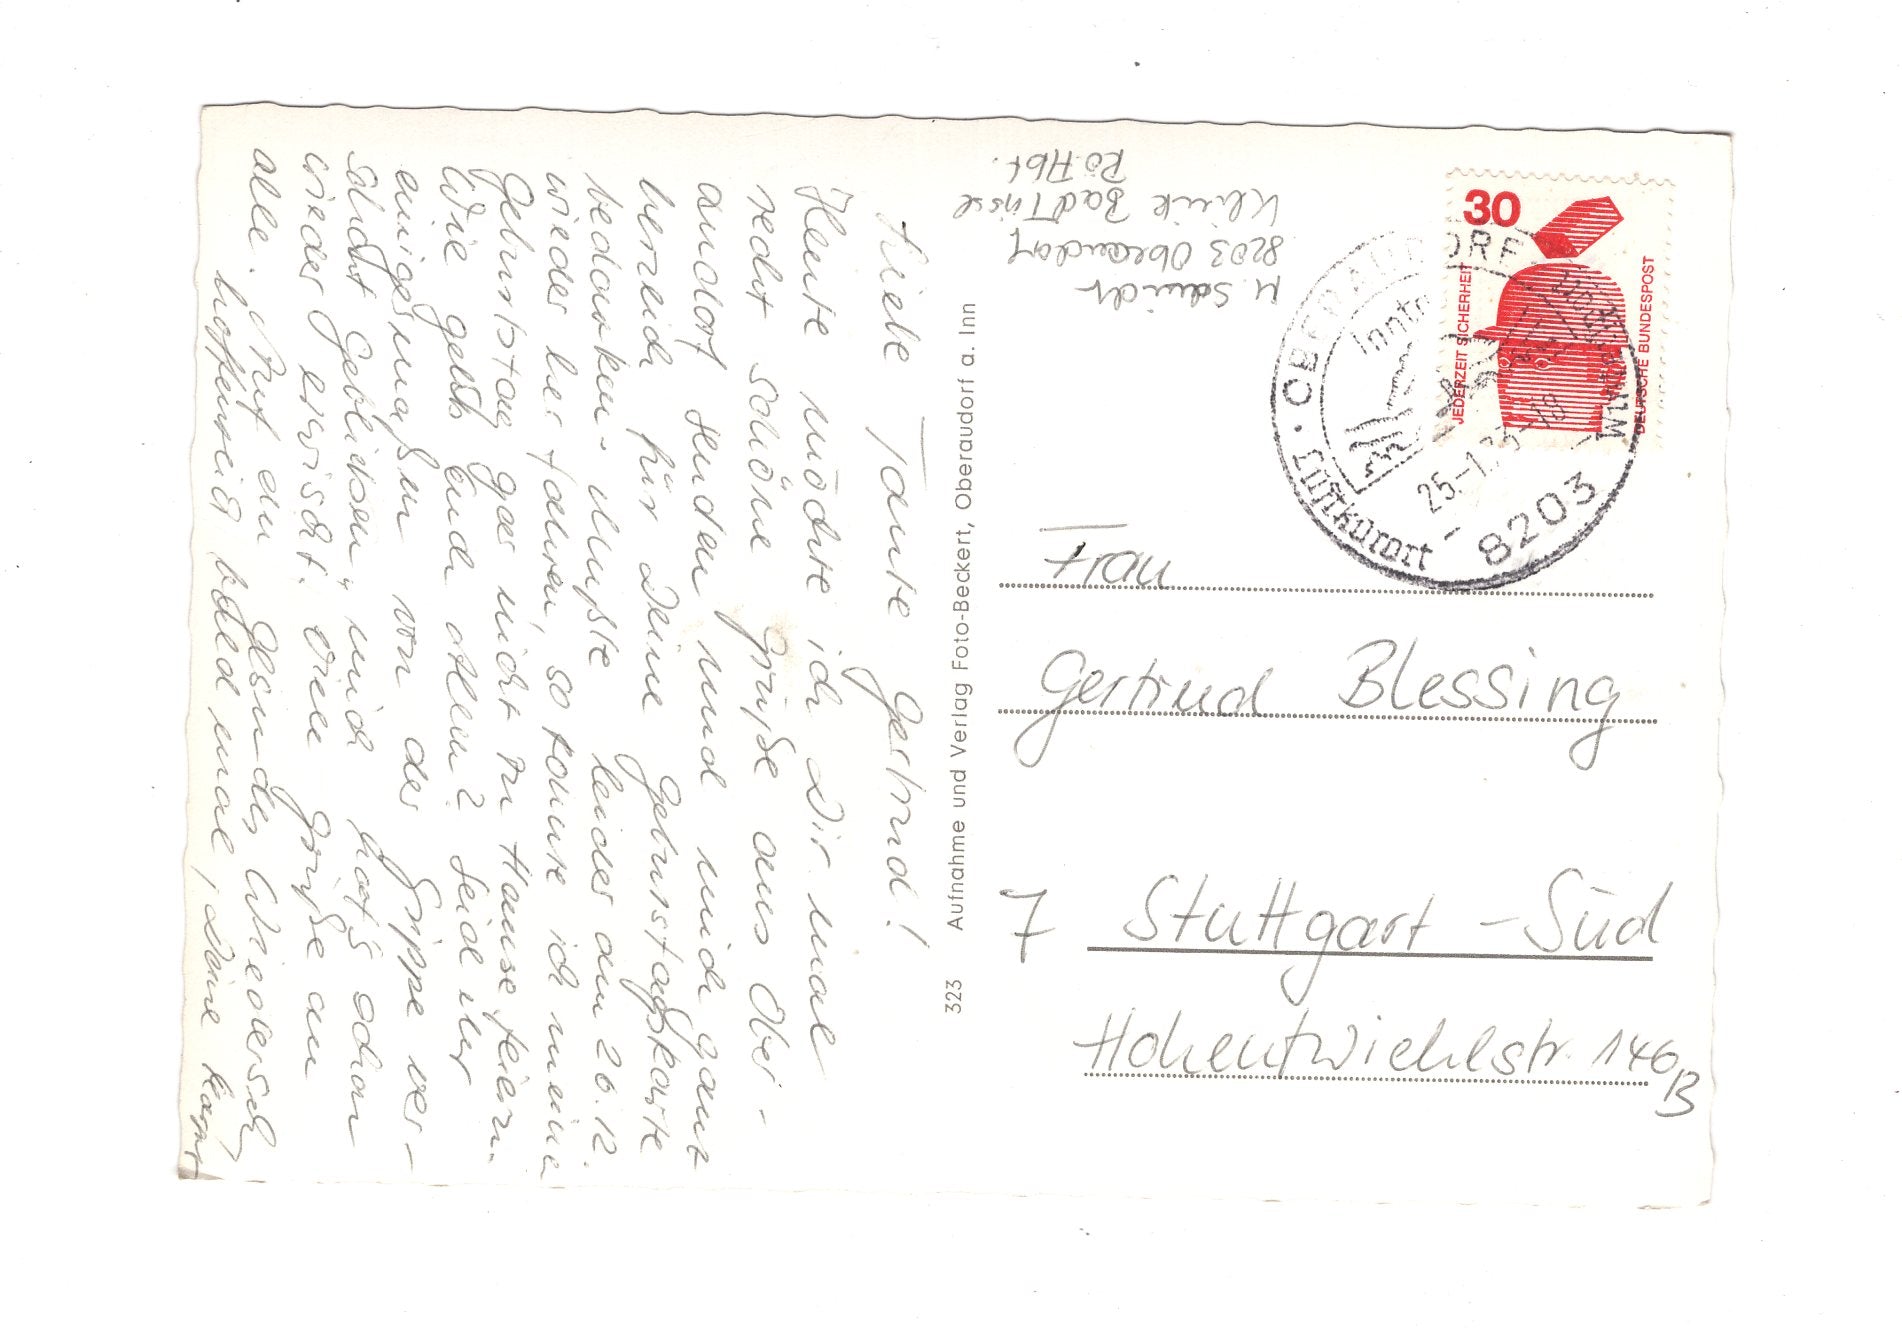 Liebe Tante Gertrud!
Heute möchte ich Dir mal
recht schöne Grüße aus Ober-
audorf senden und mich ganz
herzlich für Deine Geburtstagskarte
bedanken. Mußte leider am 26.12.
wieder her fahren, so konnte ich meinen
Geburtstag gar nicht zu Hause feiern.
Wie gehts Euch allen? Seid ihr
einigermaßen von der Grippe ver-
schont geblieben, mich hat's schon
wieder erwischt. Viele Grüße an
alle. Auf ein gesundes Wiedersehn
hoffentlich bald mal, Deine
323 Aufnahme und Verlag Foto-Beckert, Oberaudorf a. Inn
H. Schmidt
8203 Oberaudorf
Klinik Bad Trissl
Rö. Abt.
30
JEDERZEIT SICHERHEIT
DEUTSCHE BUNDESPOST
OBERAUDORF
Luftkurort
25.-1.73-18
8203
Frau
Gertrud Blessing
7 Stuttgart-Süd
Hohentwielstr. 146 B